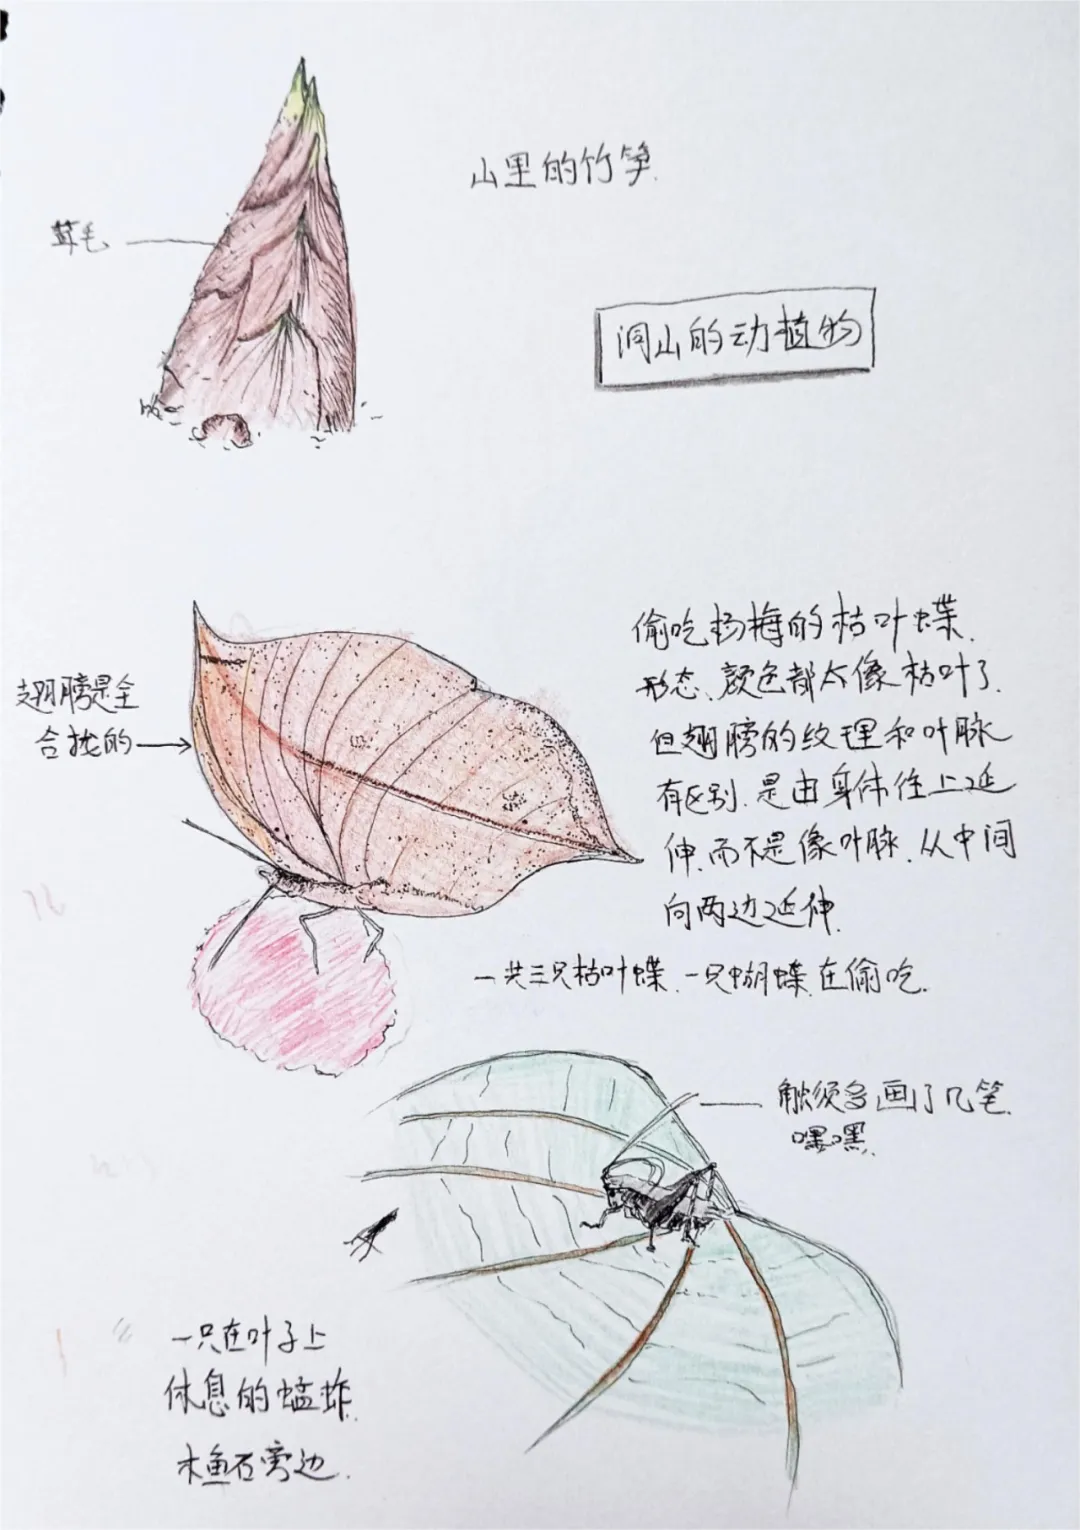 山里的竹笋.
茸毛
洞山的动植物
偷吃杨梅的枯叶蝶.
形态、颜色都太像枯叶了.
但翅膀的纹理和叶脉
有区别.是由身体往上延
伸.而不是像叶脉.从中间
向两边延伸.
翅膀是全
合拢的
一共三只枯叶蝶.一只蝴蝶.在偷吃.
触须多画了几笔.
嘿嘿.
一只在叶子上
休息的蜢蚱.
木鱼石旁边.